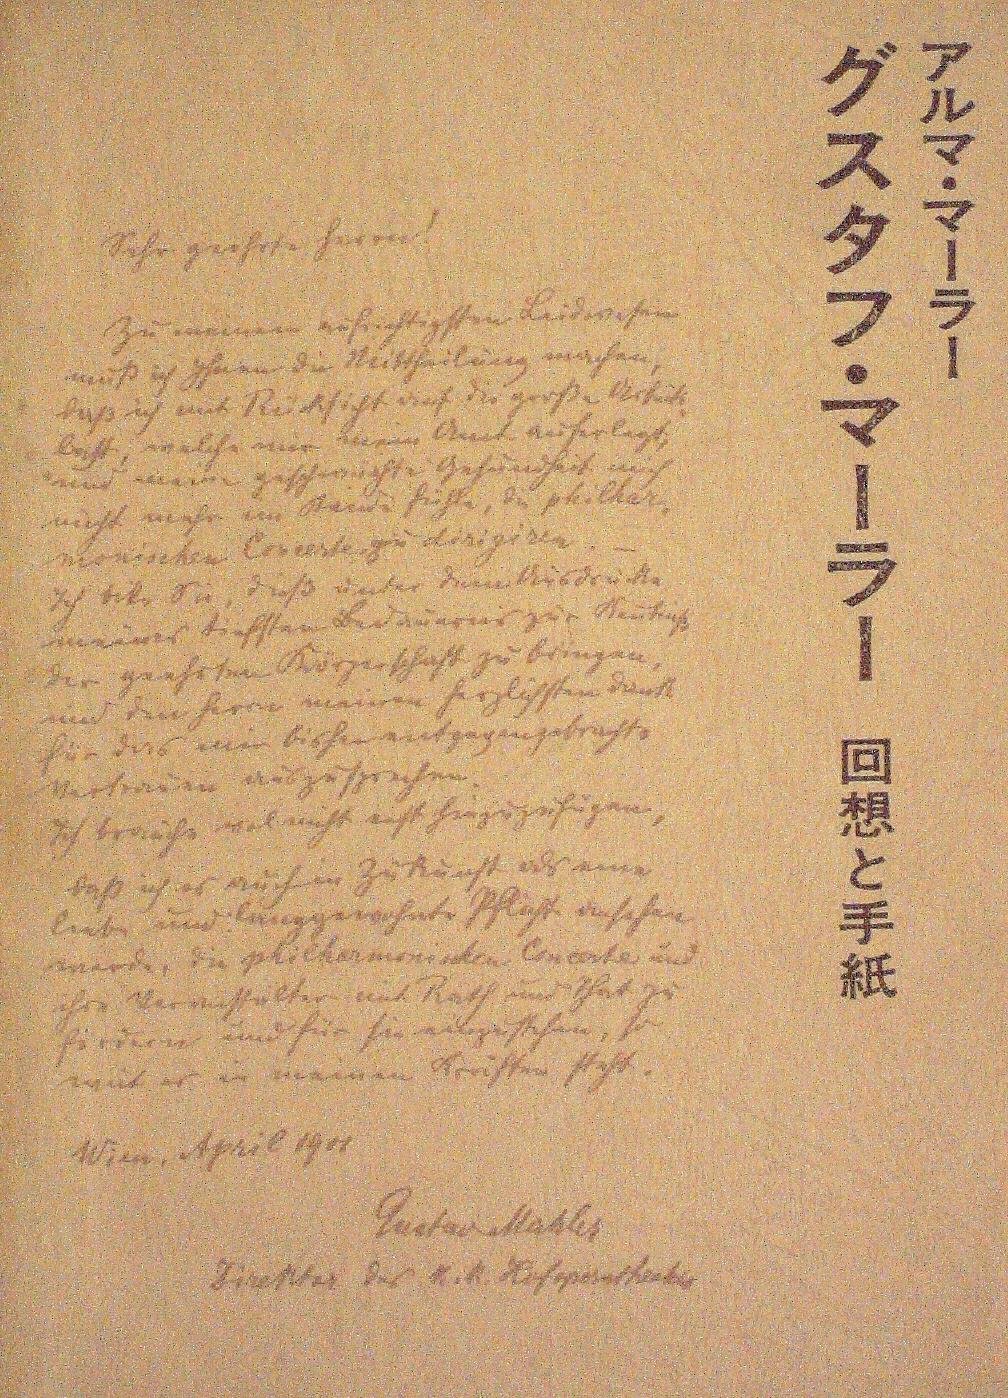 アルマ・マーラー
グスタフ・マーラー 回想と手紙
Sehr geehrte Herren!
Zu meinem aufrichtigsten Leidwesen
muß ich Ihnen die Mittheilung machen,
daß ich mit Rücksicht auf die große Arbeits-
last, welche mir mein Amt auferlegt,
und meine geschwächte Gesundheit mich
nicht mehr im Stande fühle, die philhar-
monischen Concerte zu dirigiren. —
Ich bitte Sie, dieß unter dem Ausdrucke
meines tiefsten Bedauerns zur Kenntniß
der geehrten Körperschaft zu bringen,
und den Herrn meinen herzlichsten Dank
für das mir bisher entgegengebrachte
Vertrauen auszusprechen.
Ich brauche wol nicht erst hinzuzufügen,
daß ich es auch in Zukunft als eine
liebe und langgewohnte Pflicht ansehen
werde, die philharmonischen Concerte und
ihre Veranstalter mit Rath und That zu
fördern und für sie einzustehen, so
weit es in meinen Kräften steht.
Wien, April 1901
Gustav Mahler
Direktor des K. K. Hofoperntheater